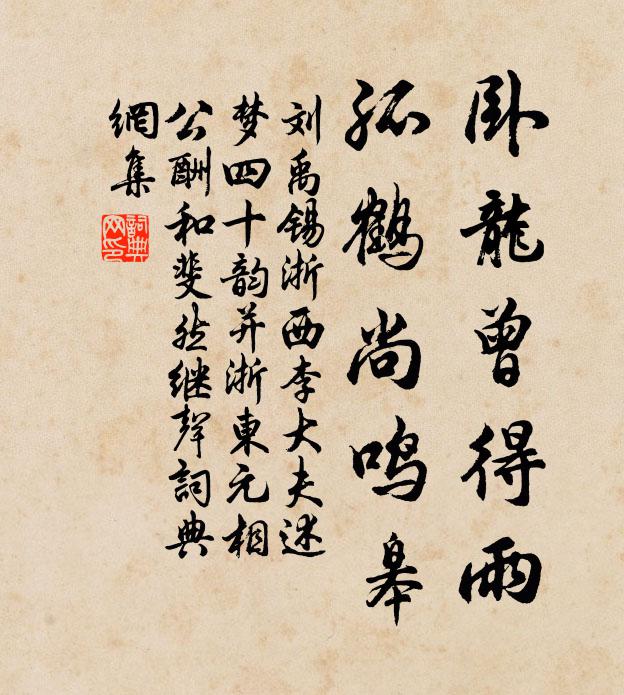 卧龍曾得雨
孤鶴尚鳴皋
刘禹锡浙西李大夫述
梦四十韵并浙東元相
公酬和斐然继聲詞典
網集
詞典網印